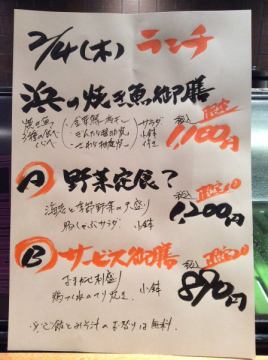 2/4(木) ランチ
浜の焼き魚御膳
焼き魚
3種の食べ
くらべ
サラダ
小鉢
付き
限定
税込
1,100円
A 野菜定食?
海老と季節野菜の天盛り
豚しゃぶサラダ 小鉢
税込 限定10
1,200円
B サービス御膳
おまかせ刺盛り
鶏つくねのてり焼き 小鉢
税込 限定10
890円
・ご飯とみそ汁のお替りは無料。